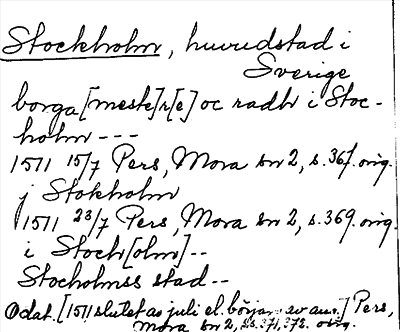 Stockholm, huvudstad i
Sverige
borga[meste]r[e] oc radh i Stoc-
holm ---
1511 15/7 Pers, Mora bn 2, s. 367. orig.
j Stokholm
1511 23/7 Pers, Mora bn 2, s. 369. orig.
i Stoch[olm] --
Stocholmss stad --
Odat. [1511 slutet av juli el. början av aug.] Pers,
Mora bn 2, ss. 371, 372. orig.